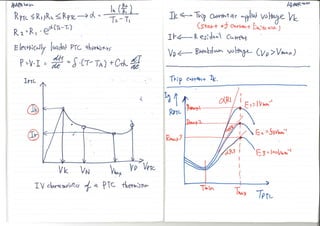 R_PTC ≤ R1, R2 ≤ R_PTC → α = ln(R2/R1) / T2 - T1
R2 = R1 · e^α(T2-T1)
Electrically loaded PTC thermistor
P = V·I = dH/dt = δ·(T-TA) + Cth dT/dt
I_PTC
VK VN Vmax VD V_PTC
IV characteristic of a PTC thermistor
IK ← Trip current at applied voltage VK
(start of current
IR ← Residual Current
VD ← Breakdown voltage (VD > Vmax)
Trip current IK
R_PTC
α(R)
E1 = 1Vmm⁻¹
Rmax2
Tmin Tmax T_PTC